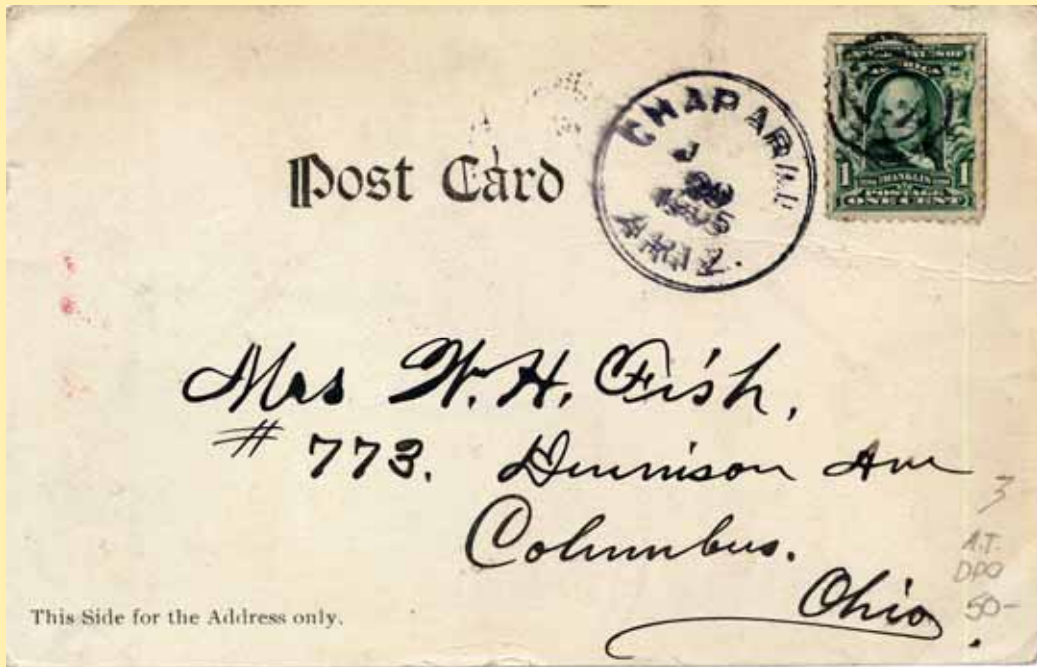 Post Card
CHAPARRAL
J
1905
ARIZ.
AMERICA
1 FRANKLIN 1
POSTAGE
ONE CENT
Mrs W. H. Fish,
# 773. Dennison Ave
Columbus.
Ohio.
3
A.T.
DPO
50-
This Side for the Address only.